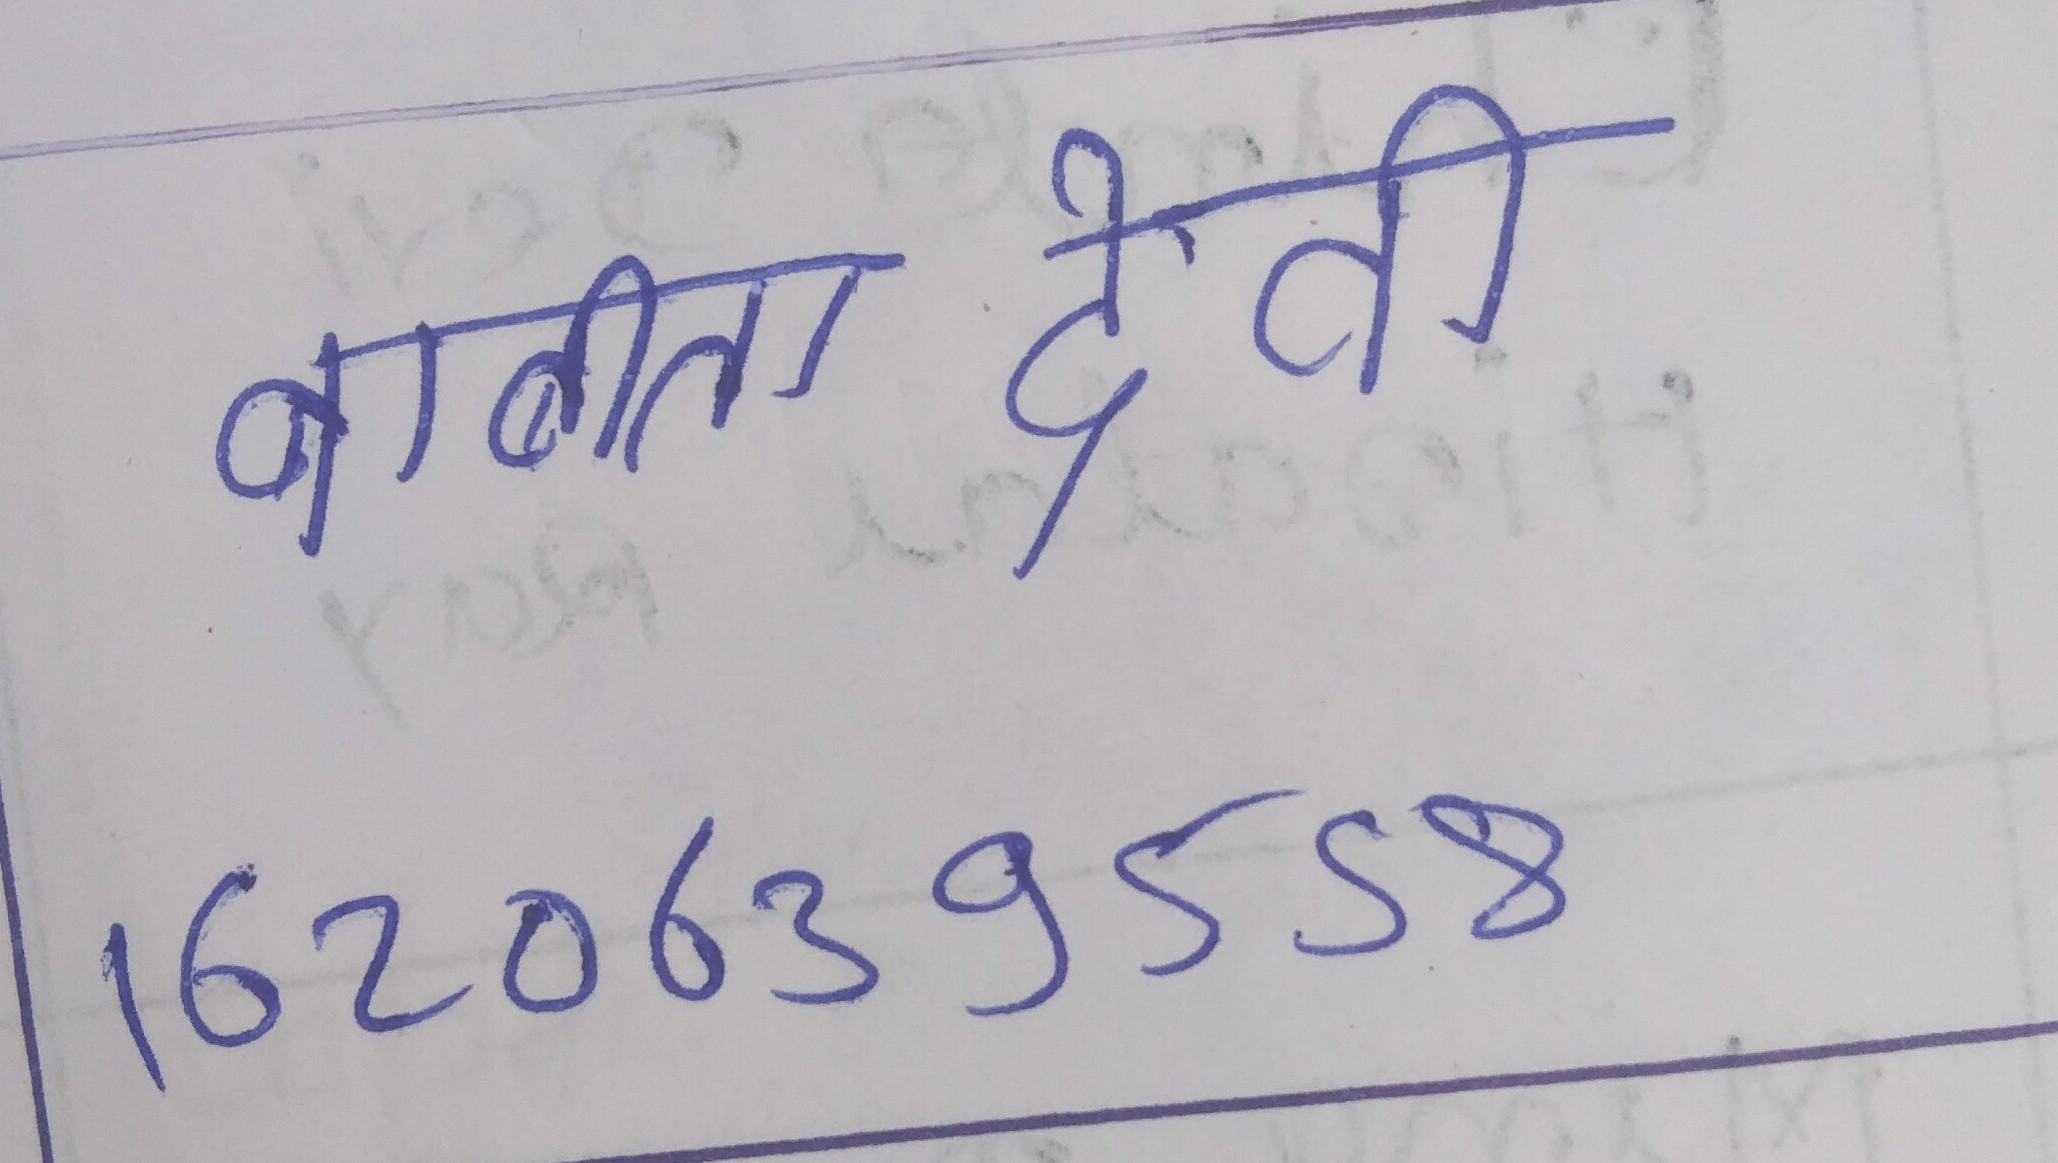 बाबीता देवी
1620639558